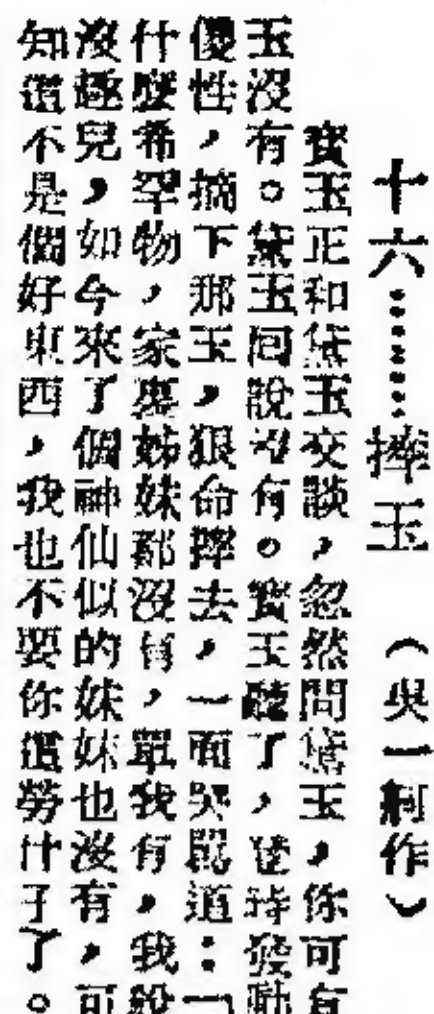 十六……摔玉 （吳一舸作）
寶玉正和黛玉交談，忽然問黛玉，你可有
玉沒有。黛玉囘說沒有。寶玉聽了，登時發動
傻性，摘下那玉，狠命摔去，一面哭罵道：「
什麼希罕物，家裏姊妹都沒有，單我有，我說
沒趣兒，如今來了個神仙似的妹妹也沒有，可
知這不是個好東西，我也不要你這勞什子了。